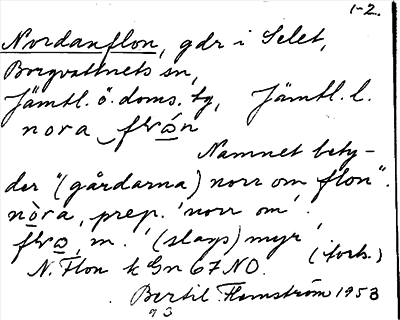 1-2.
Nordanflon, gdr i Selet,
Borgvattnets sn,
Jämtl. ö. doms. tg, Jämtl. l.
nora flón
Namnet bety-
der "(gårdarna) norr om flon".
nòra, prep. 'norr om'.
m. '(slags) myr'
(forts.)
N. Flon k Gn 67 NO.
Bertil Flemström 1953